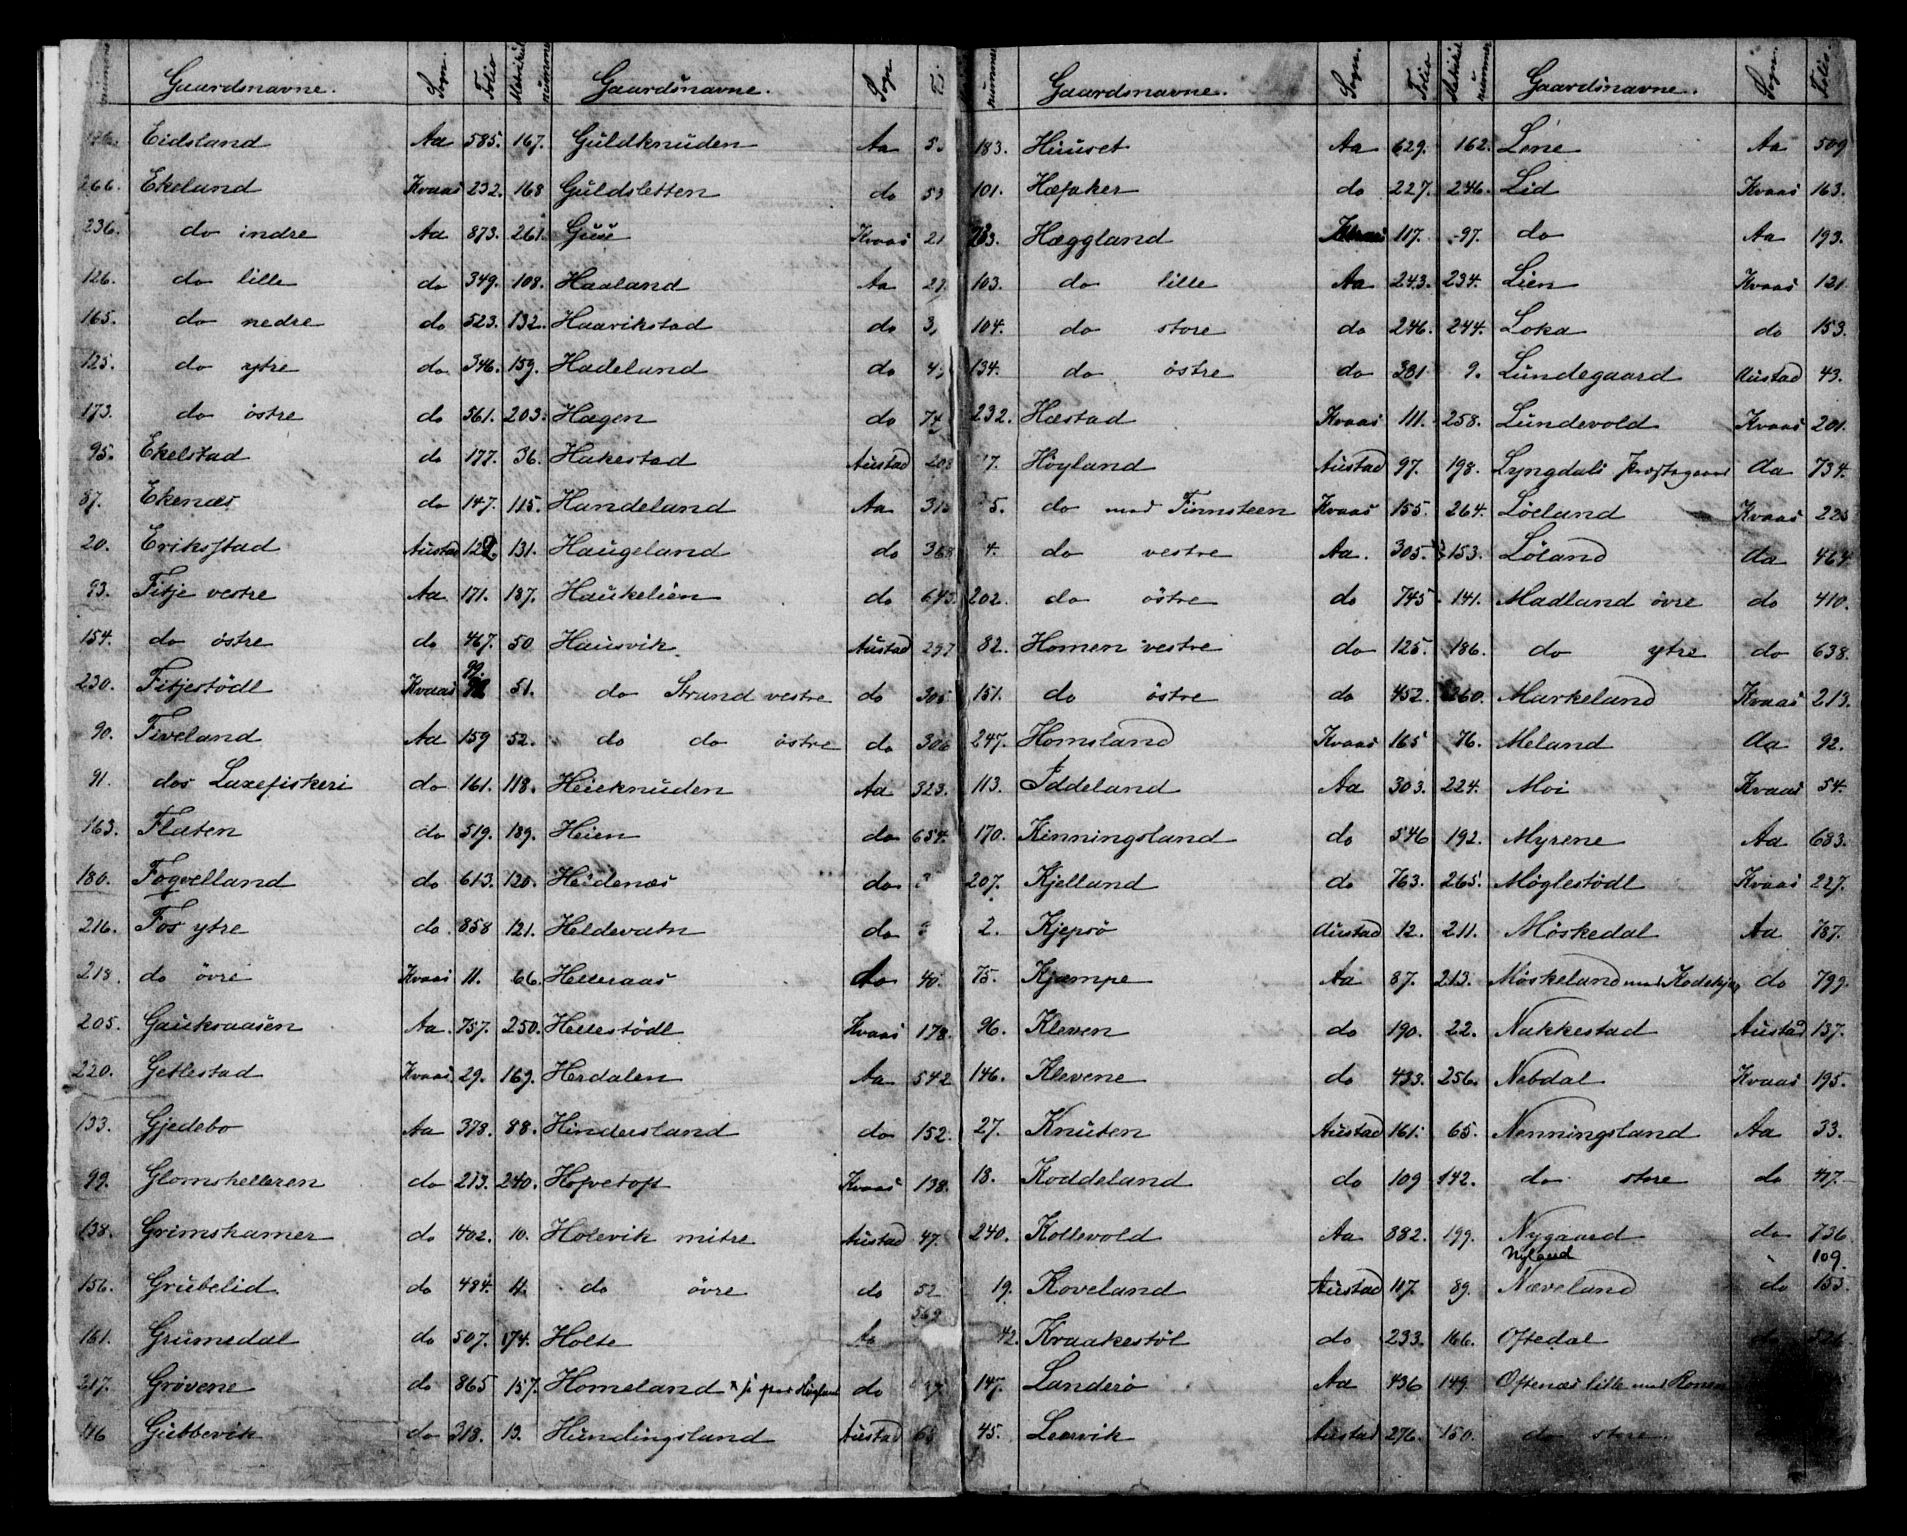 Gaardsnavne. Sogn. Folio Matrikul nummer Gaardsnavne. Sogn
nummer Gaardsnavne. Sogn. Folio Matrikul nummer Gaardsnavne. Sogn. Folio
Eidsland Aa 585. 167. Guldknuden Aa
266. Ekeland Kvaas 232. 168 Guldsletten do
236. do indre Aa 873. 261. Guu Kvaas 21
126. do lille do 349. 108. Haaland Aa
165. do nedre do 523. 132. Haarikstad do
125. do ytre do 346. 159. Hadeland do
173. do östre do 561. 203. Hagen do
95. Ekelstad do 177. 36. Hakestad Austad
87. Ekenæs do 147. 115. Handeland Aa
20. Eriksstad Austad 131. Haugeland do 368
93. Fitje vestre Aa 171. 187. Haukelien do 643.
154. do östre do 467. 50 Hausvik Austad 297
230. Fitjestödl Kvaas 99. 51. do Strand vestre do 305
90. Fiveland Aa 159 52. do do östre do 306
91. dos Laxefiskeri do 161. 118. Heieknuden Aa 323.
163. Flaten do 519. 189. Heien do 654.
180. Fogvelland do 613. 120. Heidenæs do
216. Fos ytre do 858 121. Heldevatn do
218. do övre Kvaas 11. 66. Helleraas do 40.
205. Gauksaasen Aa. 757. 250. Hellestödl Kvaas 178.
220. Getlestad Kvaas 29. 169. Herdalen Aa 542
133. Gjedebo Aa 378. 88. Hindersland do 152.
99. Glomshelleren do 213. 240. Hofvetoft Kvaas 138.
138. Grimshamer do 402. 10. Holevik mitre Austad 47.
156. Grubelid do 484. 11. do övre do 52
161. Grumedal do 507. 174. Holte Aa 569
217. Grövene do 865 157. Homeland do
46 Gubbevik do 318. 13. Hundingsland Austad
183. Huuset Aa 629. 162. Lene Aa 509
101. Hæfaker do 227. 246. Lid Kvaas 163.
Hæggland Kvaas 117. 97. do Aa 193.
103. do lille Aa 243. 234. Lien Kvaas 121
104. do store do 246. 244. Loka do 153.
134. do östre do 381 9. Lundegaard Austad 43.
232. Hæstad Kvaas 111. 258. Lundevold Kvaas 201.
17. Höyland Austad 97. 198. Lyngdals Præstegaard Aa 734.
5. do med Tinnsteen Kvaas 155. 264. Löeland Kvaas 223
4. do vestre Aa. 305. 153. Löland Aa 464
202. do östre do 745 141. Madland övre do 410.
82. Homen vestre do 125. 186. do ytre do 638.
151. do östre do 452. 260. Markeland Kvaas 213.
247. Homsland Kvaas 165 76. Meland Aa 92.
113. Iddeland Aa 303. 224. Moi Kvaas 54.
170. Kinningsland do 546 192. Myrene Aa 683.
207. Kjelland do 763. 265. Möglestödl Kvaas 227.
2. Kjepsö Austad 12. 211. Möskedal Aa 787.
75. Kjæmpe Aa 87. 213. Möskeland med do 799.
96. Kleven do 190. 22. Nakkestad Austad 137.
146. Klevene do 433. 256. Nebdal Kvaas 195.
27. Knuten Austad 161. 65. Nenningsland Aa 33.
18. Koddeland do 109 142. do store do 417
240. Kollevold Aa 882. 199. Nygaard do 736
Nyland 109.
19. Koveland Austad 117. 89. Næveland do 153.
42. Kraakestöl do 233. 166. Oftedal do 526
147. Landerö Aa 436 149. Oftenæs lille med
45. Leervik Austad 276. 150. do store.